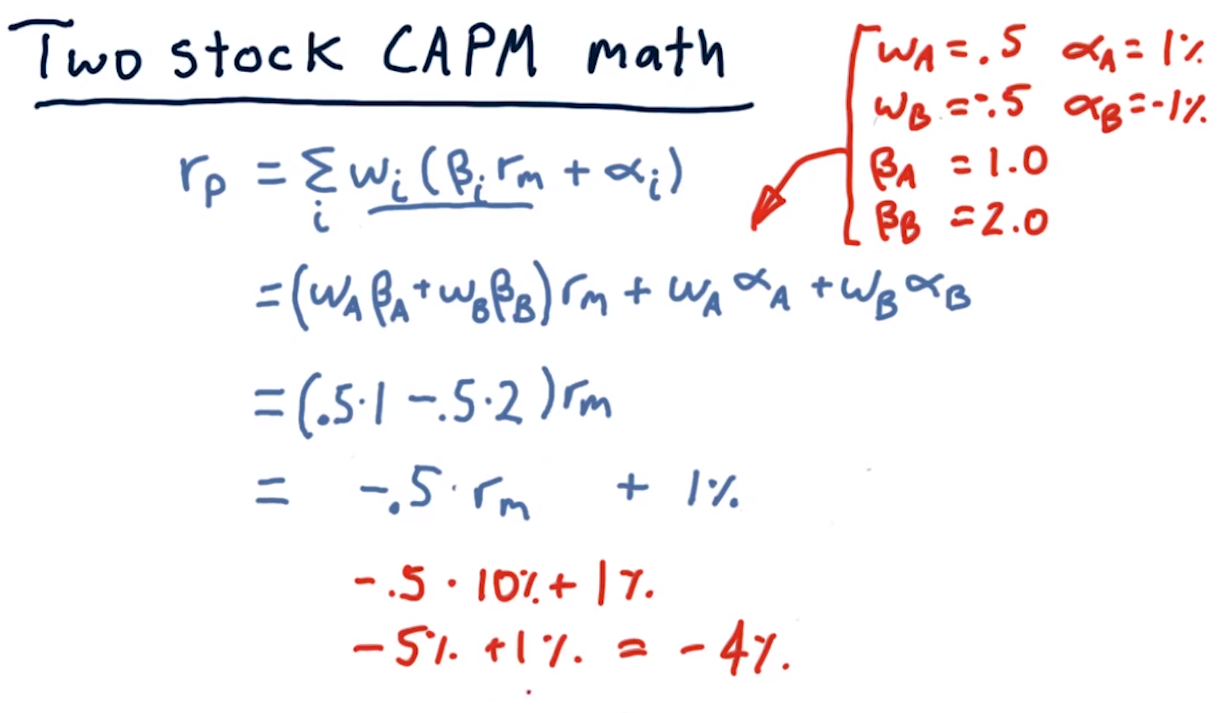 Two stock CAPM math
wA = .5 αA = 1%
wB = -.5 αB = -1%
βA = 1.0
βB = 2.0
rp = Σi wi (βi rm + αi)
= (wA βA + wB βB) rm + wA αA + wB αB
= (.5·1 - .5·2) rm
= -.5· rm + 1%
-.5 · 10% + 1%
-5% + 1% = -4%.